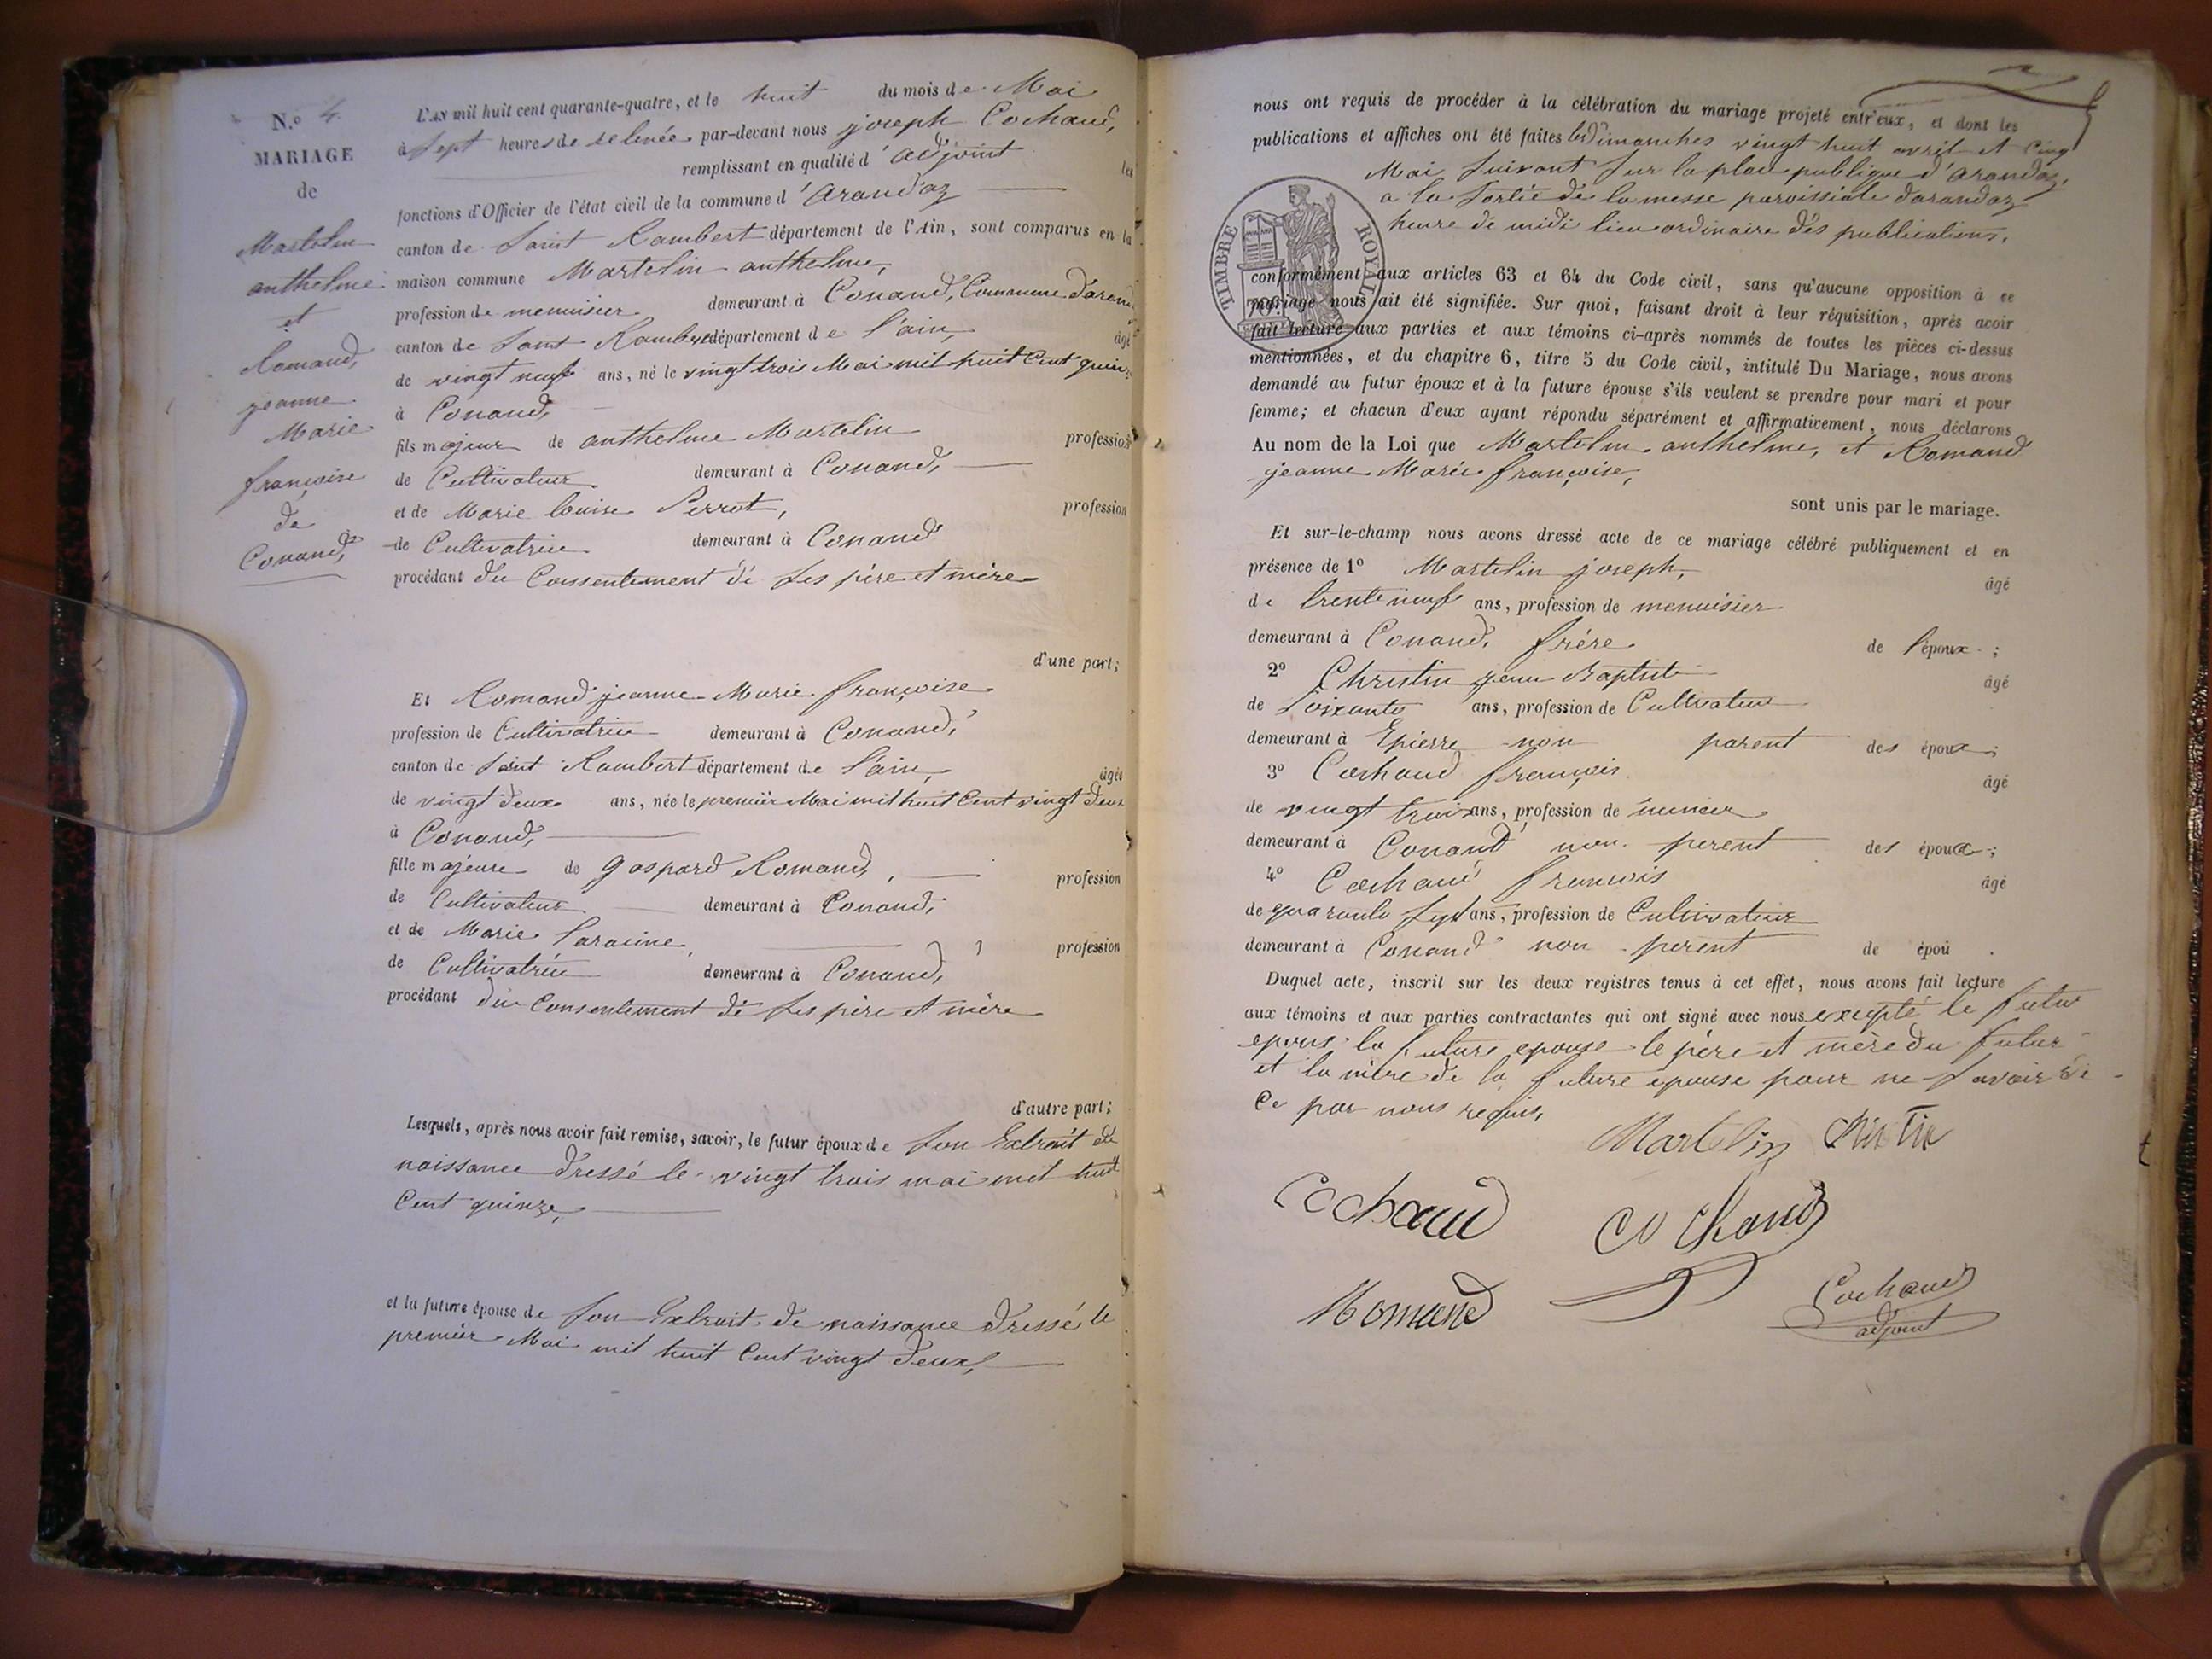 N.o 4.
MARIAGE
de
Martelin
anthelme
et
Romand,
jeanne
Marie
françoise
de
Conand,
L'AN mil huit cent quarante-quatre, et le huit du mois de Mai
à sept heures de relevée par-devant nous joseph Cochaud,
remplissant en qualité d'adjoint les
fonctions d'Officier de l'état civil de la commune d'Arandaz
canton de Saint Rambert département de l'Ain, sont comparus en la
maison commune Martelin anthelme,
profession de menuisier demeurant à Conand, Commune d'aran
canton de Saint Rambert département de l'ain, âgé
de vingt neuf ans, né le vingt trois Mai mil huit Cent quinze
à Conand,
fils majeur de anthelme Martelin profession
de Cultivateur demeurant à Conand,
et de Marie louise Perrot, profession
de Cultivatrice demeurant à Conand
procédant du Consentement de ses père et mère
d'une part;
Et Romand jeanne Marie françoise
profession de Cultivatrice demeurant à Conand,
canton de Saint Rambert département de l'ain, âgée
de vingt deux ans, née le premier Mai mil huit Cent vingt deux
à Conand,
fille majeure de gaspard Romand, profession
de Cultivateur demeurant à Conand,
et de Marie Saracine, profession
de Cultivatrice demeurant à Conand,
procédant du Consentement de ses père et mère
d'autre part;
Lesquels, après nous avoir fait remise, savoir, le futur époux de son Extrait de
naissance dressé le vingt trois mai mil huit
Cent quinze,
et la future épouse de son Extrait de naissance dressé le
premier Mai mil huit Cent vingt deux,
nous ont requis de procéder à la célébration du mariage projeté entr'eux, et dont les
publications et affiches ont été faites les Dimanches vingt huit avril et Cinq
Mai suivant sur la place publique d'arandaz,
a la sortie de la messe paroissiale darandaz
heure de midi lieu ordinaire des publications.
TIMBRE ROYAL
conformément aux articles 63 et 64 du Code civil, sans qu'aucune opposition à ce
mariage nous ait été signifiée. Sur quoi, faisant droit à leur réquisition, après avoir
fait lecture aux parties et aux témoins ci-après nommés de toutes les pièces ci-dessus
mentionnées, et du chapitre 6, titre 5 du Code civil, intitulé Du Mariage, nous avons
demandé au futur époux et à la future épouse s'ils veulent se prendre pour mari et pour
femme; et chacun d'eux ayant répondu séparément et affirmativement, nous déclarons
Au nom de la Loi que Martelin anthelme, et Romand
jeanne Marie françoise,
sont unis par le mariage.
Et sur-le-champ nous avons dressé acte de ce mariage célébré publiquement et en
présence de 1o Martelin joseph, âgé
de trente neuf ans, profession de menuisier
demeurant à Conand, frère de l'époux;
2o Christin jean Baptiste âgé
de soixante ans, profession de Cultivateur
demeurant à Epierre non parent des époux;
3o Cochaud françois âgé
de vingt trois ans, profession de
demeurant à Conand non perent des époux;
4o Cochaud francois âgé
de quarante sept ans, profession de Cultivateur
demeurant à Conand non perent de épou.
Duquel acte, inscrit sur les deux registres tenus à cet effet, nous avons fait lecture
aux témoins et aux parties contractantes qui ont signé avec nous excepté le futur
epous la future epouse le père et mère du futur
et la mère de la future epouse pour ne savoir de
Ce par nous requis,
Martelin Christin
Cochaud Cochand
Romand Cochaud
adjoint